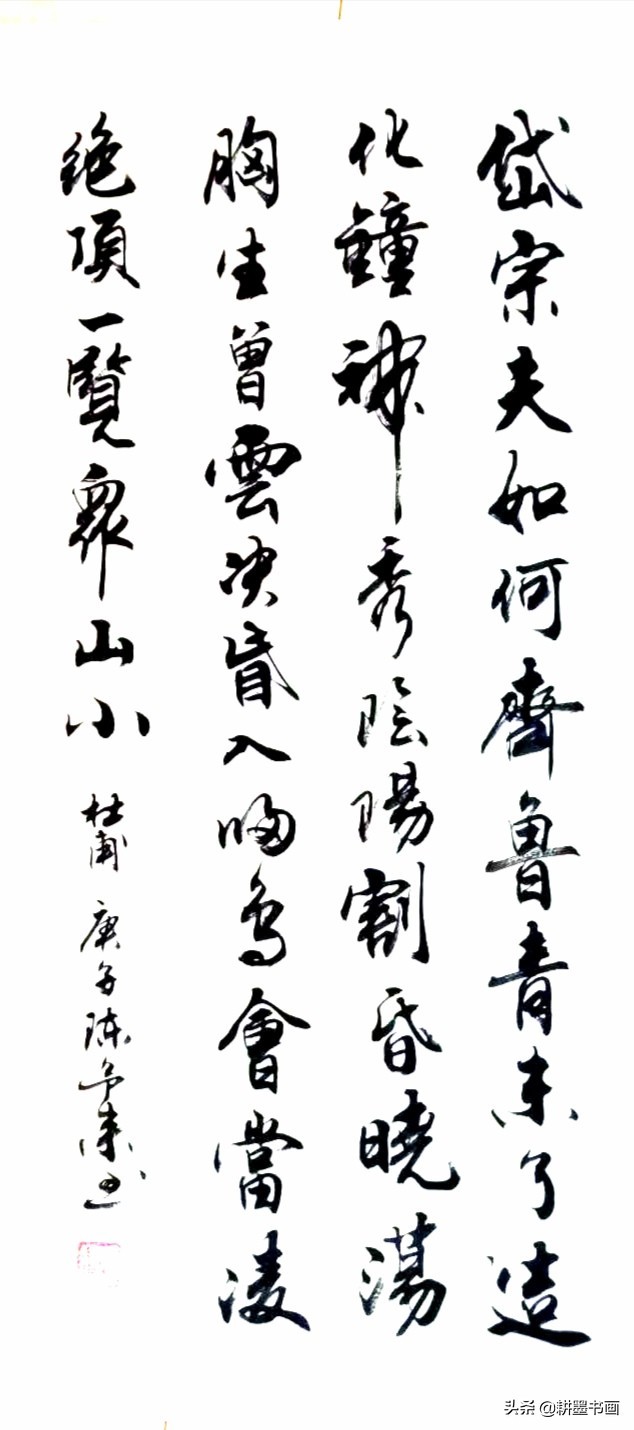 岱宗夫如何齊魯青未了造
化鐘神秀陰陽割昏曉蕩
胸生曾雲决眥入歸鳥會當凌
絶頂一覽眾山小 杜甫 庚子陳書
头条 @耕墨书画